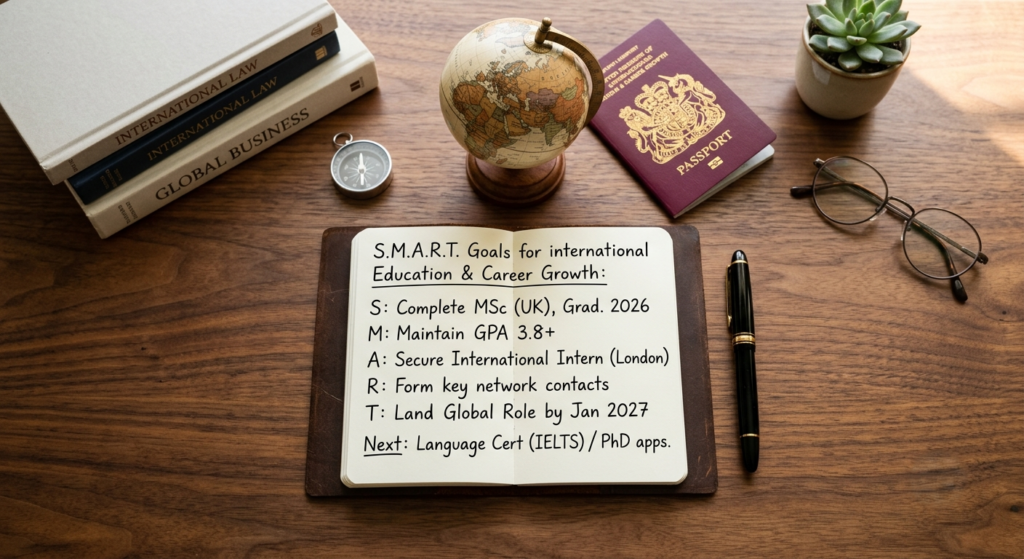 INTERNATIONAL LAW
INTERNATIONAL LAW
GLOBAL BUSINESS
PASSPORT
S.M.A.R.T. Goals for international
Education & Career Growth:
S: Complete MSc (UK), Grad. 2026
M: Maintain GPA 3.8+
A: Secure International Intern (London)
R: Form key network contacts
T: Land Global Role by Jan 2027
Next: Language Cert (IELTS) / PhD apps.